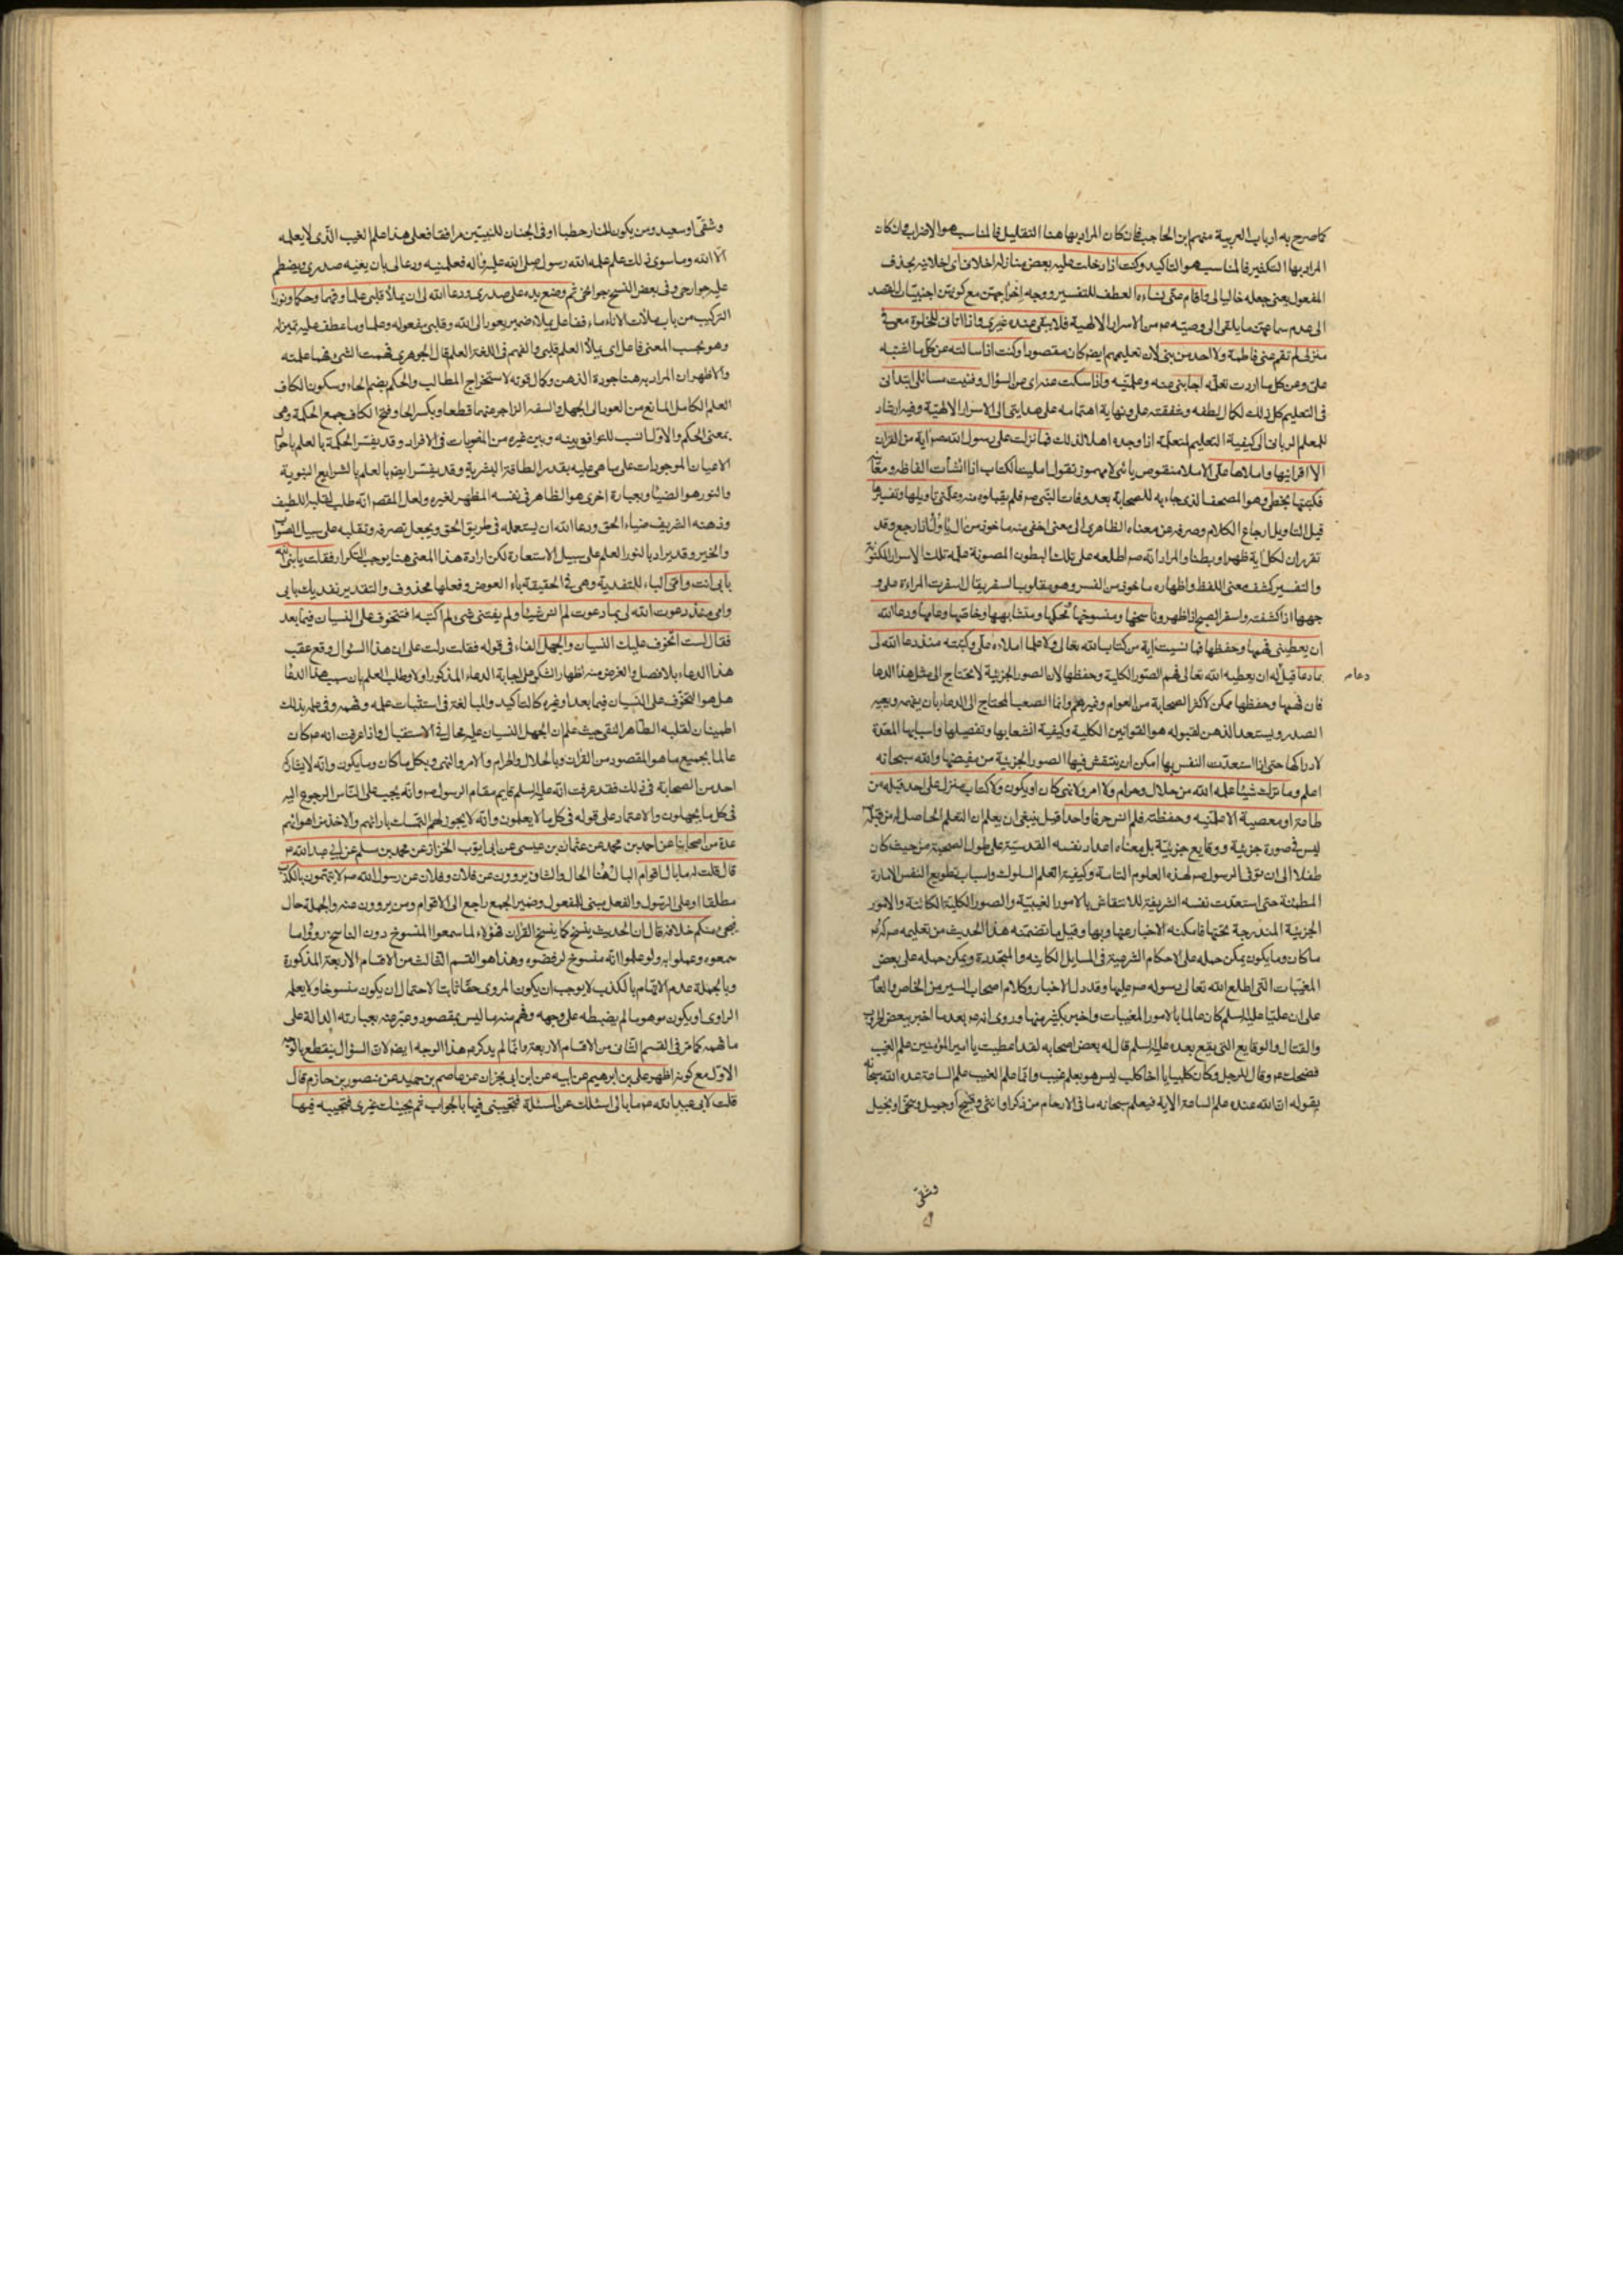 كما صرح به ارباب العربية منهم ابن الحاجب فان كان المراد بها هنا التقليل فالمناسب هو الاضراب وان كان
المراد بها التكثير فالمناسب هو التأكيد وكنت اذا دخلت عليه بعض منازله اخلاني اى اخلانيه بحذف
المفعول يعنى جعله خاليا لى واقام عنى نساءه العطف للتفسير ووجه اخراجهن مع كونهن اجنبيات القصد
الى عدم سماعهن ما يلقى الى وصيه ص من الاسرار الالهية فلا يبقى عنده غيرى واذا اتانى للخلوة معى فى
منزلى لم تقم عنى فاطمة ولا احد من بنى لان تعليمهم ايضا كان مقصودا وكنت اذا سألته عن كل ما اشتبه
على وعن كل ما اردت تعلمه اجابنى عنه وعلمنيه واذا سكت عنه اى عن السؤال وفنيت مسائلى ابتدانى
فى التعليم كل ذلك لكمال لطفه وشفقته على ونهاية اهتمامه على هدايتى الى الاسرار الالهية وفيه ارشاد
للمعلم الربانى الى كيفية التعليم لمتعلمه اذا وجده اهلا لذلك فما نزلت على رسول الله ص آية من القرآن
الا اقرأنيها واملاها على الاملاء منقوص يائى لا مهموز تقول امليت الكتاب اذا انشأت الفاظه ومعانيه
فكتبتها بخطى وهو المصحف الذى جاء به للصحابة بعد وفات النبى ص فلم يقبلوه منه وعلمنى تاويلها وتفسيرها
قيل التاويل ارجاع الكلام وصرفه عن معناه الظاهرى الى معنى اخفى منه ماخوذ من آل يؤول اذا رجع وقد
تقرر ان لكل آية ظهرا وبطنا والمراد انه ص اطلعه على تلك البطون المصونة علمه تلك الاسرار المكنونة
والتفسير كشف معنى اللفظ واظهاره ماخوذ من الفسر وهو مقلوب السفر يقال اسفرت المراءة على و
جهها اذا كشفته واسفر الصبح اذا ظهر وناسخها ومنسوخها محكمها ومتشابهها وخاصها وعامها ودعا الله
ان يعطينى فهمها وحفظها فما نسيت آية من كتاب الله تعالى ولا علما املاه على وكتبته منذ دعا الله لى
بما دعا قيل له ان يعطيه الله تعالى فهم الصور الكلية وحفظها لان الصور الجزئية لا يحتاج الى مثل هذا الدعا
دعاء م
فان فهمها وحفظها ممكن لاكثر الصحابة من العوام وغيرهم وانما الصعب المحتاج الى الدعاء بان يفهمه ويعيه
الصدر ويستعد الذهن لقبوله هو القوانين الكلية وكيفية انشعابها وتفصيلها واسبابها المعدة
لادراكها حتى اذا استعدت النفس بها امكن ان ينتقش فيها الصور الجزئية من مفيضها والله سبحانه
اعلم وما ترك شيئا علمه الله من حلال وحرام ولا امر ولا نهى كان او يكون ولا كتاب منزل على احد قبله من
طاعة او معصية الا علمنيه وحفظته فلم انس حرفا واحدا قيل ينبغى ان يعلم ان التعلم الحاصل له من قبله
ليس فى صورة جزئية ووقايع جزئية بل معناه اعداد نفسه القدسية على طول الصحبة من حيث كان
طفلا الى ان توفى الرسول ص لهذه العلوم التامة وكيفية التعلم السلوك واسباب تطويع النفس الامارة
المطمئنة حتى استعدت نفسه الشريفة للانتقاش بالامور الغيبية والصور الكلية الكائنة والامور
الجزئية المندرجة تحتها فامكنه الاخبار عنها وبها وقيل ما تضمنه هذا الحديث من تعليمه ص كل
ما كان وما يكون يمكن حمله على الاحكام الشرعية فى المسايل الكاينه والمتجددة ويمكن حمله على بعض
المغيبات التى اطلع الله تعالى رسوله ص عليها وقد دل الاخبار وكلام اصحاب السير من الخاص والعام
على ان عليا عليه السلم كان عالما بالامور المغيبات واخبر بكثير منها وروى انه ع بعد ما اخبر ببعض الحروب
والقتال والوقايع التى يقع بعده عليه السلم قال له بعض اصحابه لقد اعطيت يا امير المؤمنين علم الغيب
فضحك ع وقال للرجل وكان كلبيا يا اخا كلب ليس هو بعلم غيب وانما علم الغيب علم الساعة عده الله سبحانه
بقوله ان الله عنده علم الساعة الاية فيعلم سبحانه ما فى الارحام من ذكر او انثى وقبيح او جميل وسخى او بخيل
وشقى
وشقى او سعيد ومن يكون للنار حطبا او فى الجنان للنبيين مرافقا فعلى هذا علم الغيب الذى لا يعلمه
الا الله وما سوى ذلك علم علمه الله رسول صلى الله عليه واله فعلمنيه ودعا لى بان يعيه صدرى ويضطم
عليه جوارحى وفى بعض النسخ جوانحى ثم وضع يده على صدرى ودعا الله لى ان يملأ قلبى علما وفهما وحكما ونورا
التركيب من باب ملأت الاناء ماء ففاعل يملاء ضمير يعود الى الله وقلبى مفعوله وعلما وما عطف عليه تميز له
وهو بحسب المعنى فاعل اى يملأ العلم قلبى والفهم فى اللغة العلم قال الجوهرى فهمت الشىء فهما علمته
والاظهر ان المراد به هنا جودة الذهن وكمال قوته لاستخراج المطالب والحكم بضم الحاء وسكون الكاف
العلم الكامل المانع من العود الى الجهل والسفه الزاجر عنهما قطعا وبكسر الحا وفتح الكاف جمع الحكمة وهى
بمعنى الحكم والاول انسب للتوافق بينه وبين غيره من المنصوبات فى الافراد وقد يفسر الحكمة بالعلم باحوال
الاعيان الموجودات على ما هى عليه بقدر الطاقة البشرية وقد يفسر ايضا بالعلم بالشرايع النبوية
والنور هو الضياء وبعبارة اخرى هو الظاهر فى نفسه المظهر لغيره ولعل المقصم انه طلب لقلبه اللطيف
وذهنه الشريف ضياء الحق ودعا الله ان يستعمله فى طريق الحق ويجعل تصرفه وتقلبه على سبيل الصواب
والخير وقد يراد بالنور العلم على سبيل الاستعارة لكن ارادة هذا المعنى هنا يوجب التكرار فقلت يا نبى الله
بابى انت وامى الباء للتفدية وهى فى الحقيقة باء العوض وفعلها محذوف والتقدير نفديك بابى
وامى منذ دعوت الله لى بما دعوت لم انس شيئا ولم يفتنى شىء لم اكتبه افتتخوف على النسيان فيما بعد
فقال لست اتخوف عليك النسيان والجهل الفاء فى قوله فقلت دلت على ان هذا السؤال وقع عقيب
هذا الدعاء بلا فصل والغرض منه اظهار الشكر على اجابة الدعاء المذكور اولا وطلب العلم بان سبب هذا الدعاء
هل هو التخوف على النسيان فيما بعد او غيره كالتاكيد والمبالغة فى استثبات علمه وفهمه وفى علمه بذلك
اطمينان لقلبه الطاهر النقى حيث علم ان الجهل النسيان عليه محال فى الاستقبال واذا عرفت انه ع كان
عالما بجميع ما هو المقصود من القرآن وبالحلال والحرام والامر والنهى وبكل ما كان وما يكون وانه لا يشاركه
احد من الصحابة فى ذلك فقد عرفت انه عليه السلم قايم مقام الرسول ص وانه يجب على الناس الرجوع اليه
فى كل ما يجهلون والاعتماد على قوله فى كل ما لا يعلمون وانه لا يجوز لهم التمسك بارائهم والاخذ من اهوائهم
عدة من اصحابنا عن احمد بن محمد عن عثمان بن عيسى عن ابى ايوب الخزاز عن محمد بن مسلم عن ابى عبد الله ع
قال قلت له ما بال اقوام البال هنا الحال والشان يروون عن فلان وفلان عن رسول الله ص لا يتهمون بالكذب
مطلقا او على الرسول والفعل مبنى للمفعول وضمير الجمع راجع الى الاقوام ومن يروون عنه والجملة حال
فيجىء منكم خلافه قال ان الحديث ينسخ كما ينسخ القران فهؤلاء لما سمعوا المنسوخ دون الناسخ رووا ما
سمعوه وعملوا به ولو علموا انه منسوخ لرفضوه وهذا هو القسم الثالث من الاقسام الاربعة المذكورة
وبالجملة عدم الاتهام بالكذب لا يوجب ان يكون المروى حقا ثابتا لاحتمال ان يكون منسوخا ولا يعلمه
الراوى او يكون موهوما لم يضبطه على وجهه وفهم منه ما ليس بمقصود وعبر عنه بعبارته الدالة على
ما فهمه كما مر فى القسم الثانى من الاقسام الاربعة وانما لم يذكر ع هذا الوجه ايضا لان السؤال ينقطع بالوجه
الاول مع كونه اظهر على بن ابرهيم عن ابيه عن ابن ابى نجران عن عاصم بن حميد عن منصور بن حازم قال
قلت لابى عبد الله ع ما بالى اسئلك عن المسئلة فتجيبنى فيها بالجواب ثم يجيئك غيرى فتجيبه فيها